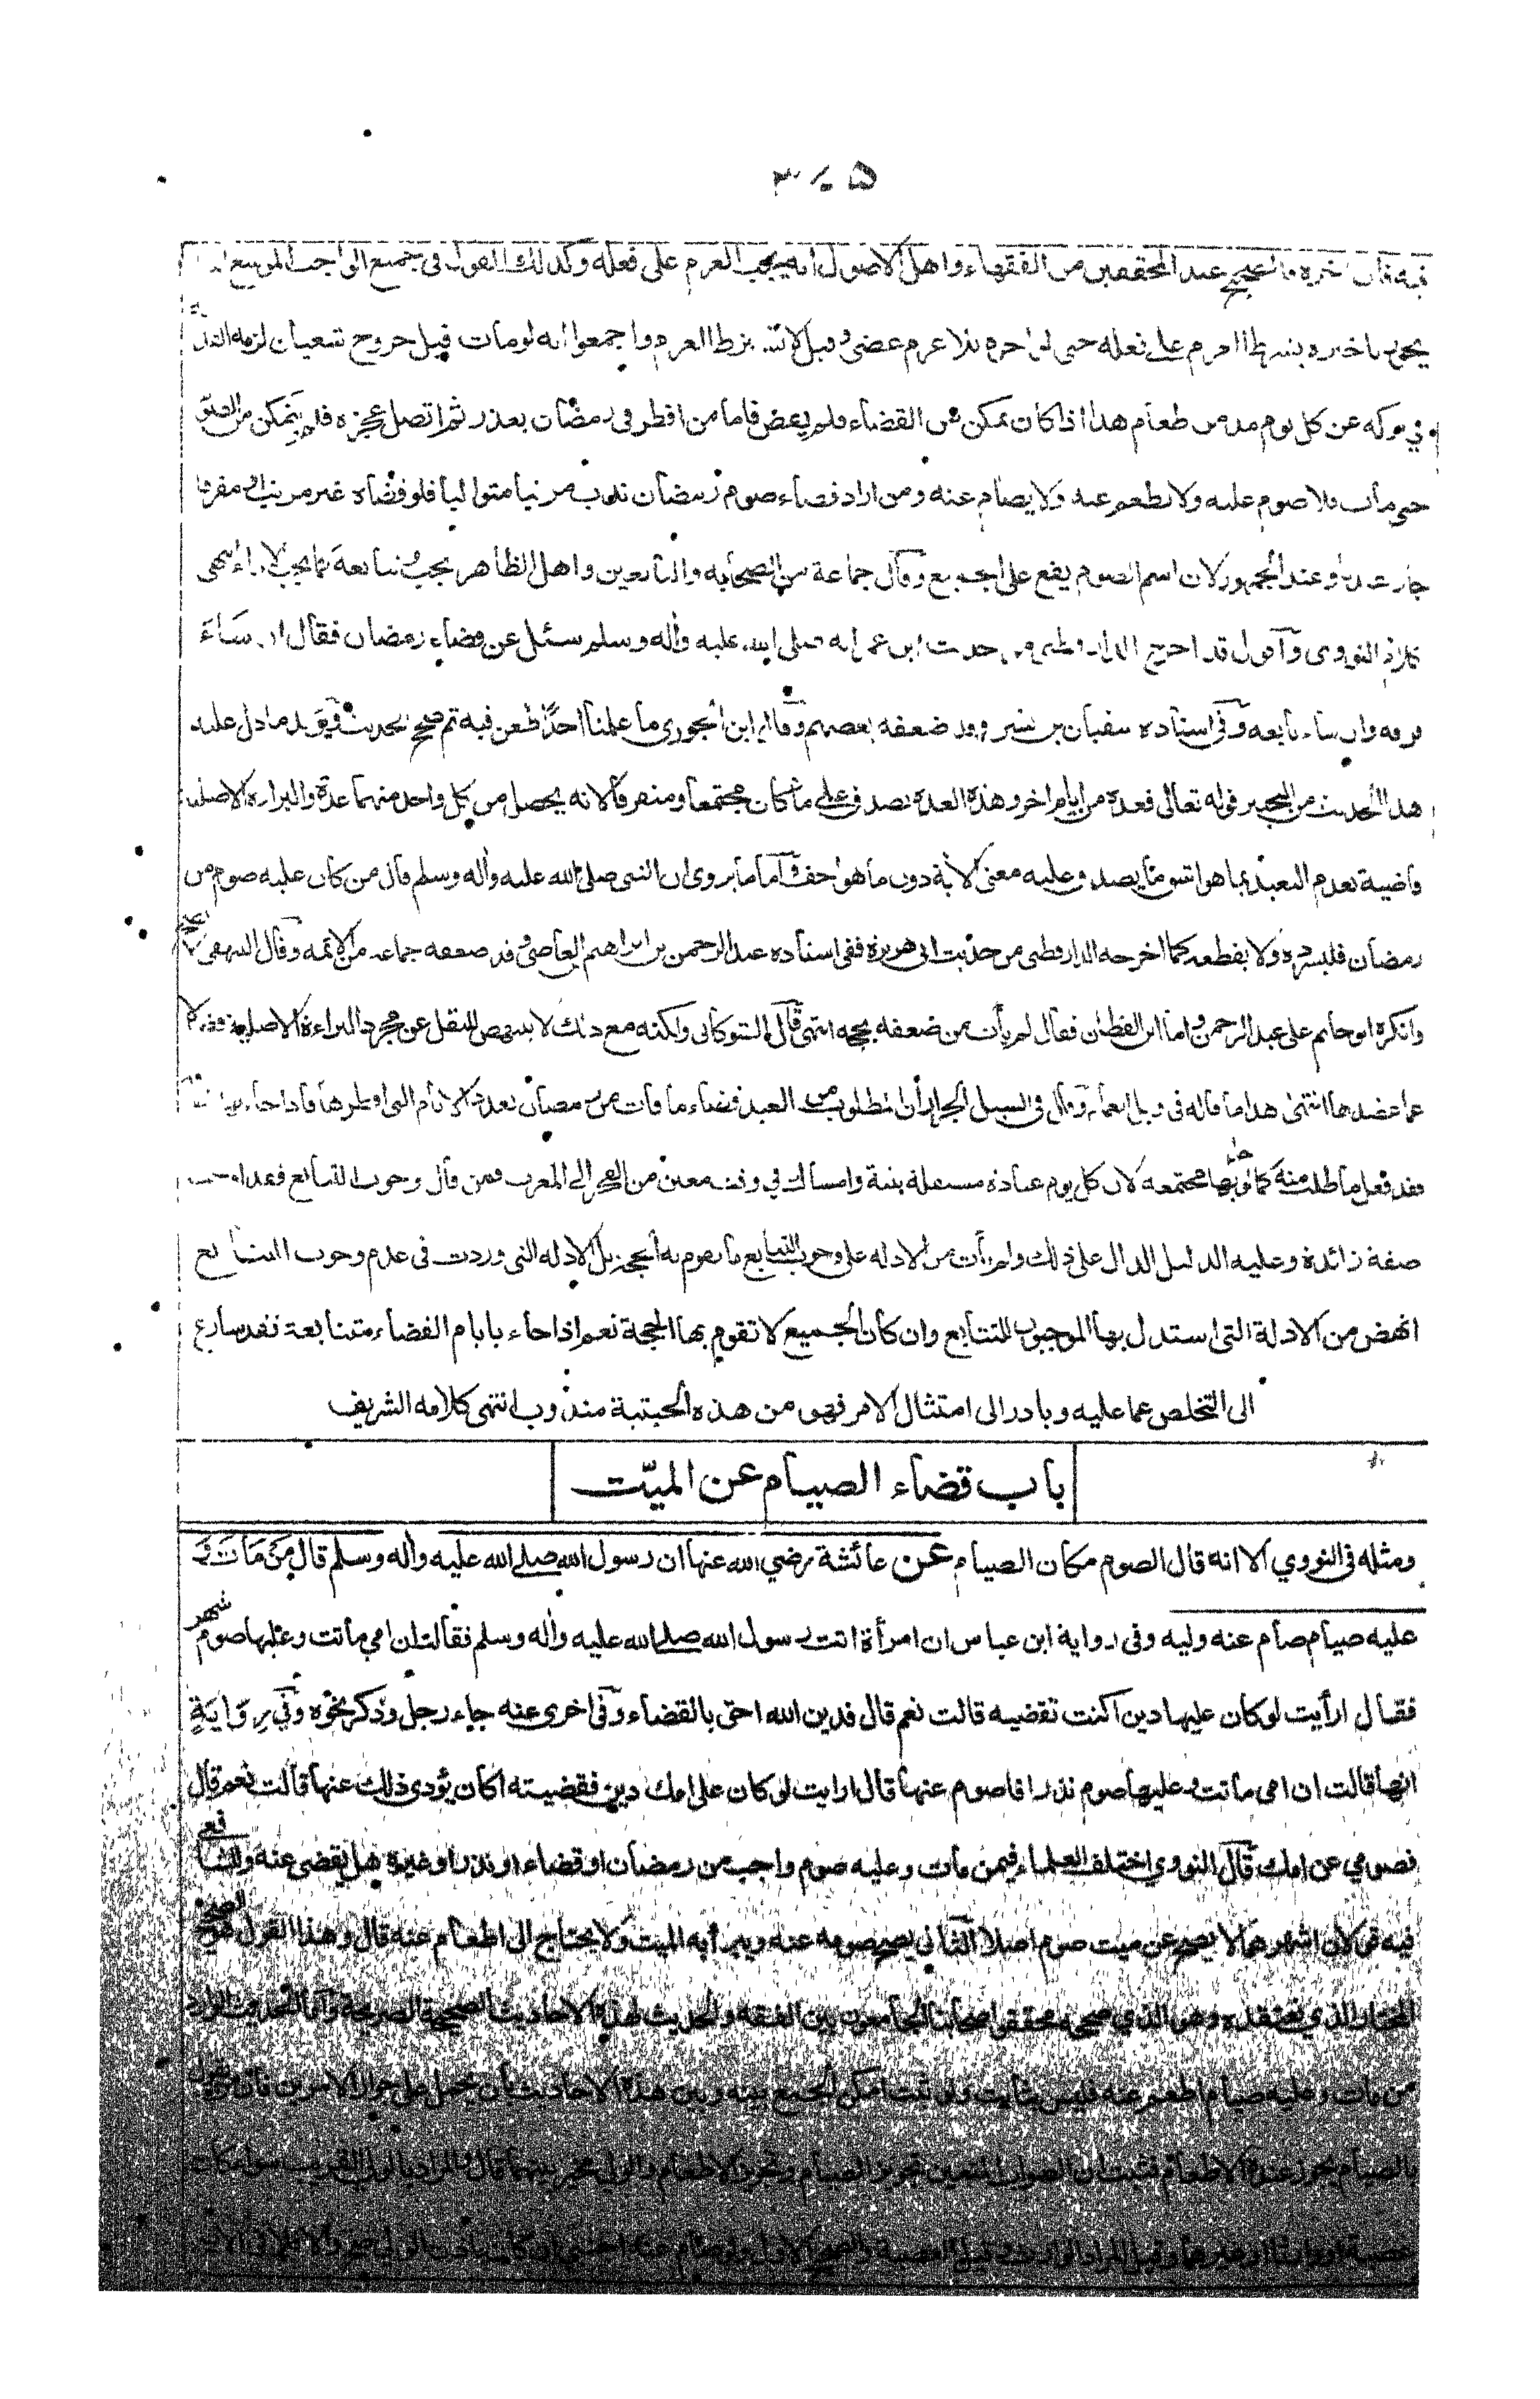 ٣٠٥
فيه فان اخره فالصحيح عند المحققين من الفقهاء واهل الاصول انه يجب العزم على فعله وكذلك القول في جميع الواجب الموسع انما
يجوز تاخيره بشرط العزم على فعله حتى لو اخره بلا عزم عصى وقيل لا يشترط العزم واجمعوا انه لو مات قبل خروج شعبان لزمه الفدية
في تركه عن كل يوم مد من طعام هذا اذا كان تمكن من القضاء فلم يقض فاما من افطر في رمضان بعذر ثم اتصل عجزه فلم يتمكن من الصوم
حتى مات فلا صوم عليه ولا يطعم عنه ولا يصام عنه ومن اراد قضاء صوم رمضان ندب مرتبا متواليا فلو قضاه غير مرتب او مفرقا
جاز عندنا وعند الجمهور لان اسم الصوم يقع على الجميع وقال جماعة من الصحابه والتابعين واهل الظاهر يجب تتابعه كما يجب الاداء انتهى
كلام النووى واقول قد اخرج الدارقطني من حديث ابن عمر انه صلى الله عليه واله وسلم سئل عن قضاء رمضان فقال ان شاء
فرقه وان شاء تابعه وفي اسناده سفيان بن بشر وقد ضعفه بعضهم وقال ابن الجوزي ما علمنا احدا طعن فيه ثم صحح الحديث ويؤيد ما دل عليه
هذا الحديث من التخيير قوله تعالى فعدة من ايام اخر وهذه العدة تصدق على ما كان مجتمعا ومتفرقا لانه يحصل من كل واحد منهما عدة والبراءة الاصلية
قاضية بعدم التعبد بما هو اشق مما يصدق عليه معنى الاية دون ما هو اخف واما ما يروى ان النبي صلى الله عليه واله وسلم قال من كان عليه صوم من
رمضان فليسرده ولا يقطعه كما اخرجه الدارقطني من حديث ابى هريرة ففى اسناده عبد الرحمن بن ابراهيم القاضي وقد ضعفه جماعه من الائمه وقال البيهقي لا يصح
وانكره ابو حاتم على عبد الرحمن واما ابن القطان فقال لم يأت من ضعفه بحجه انتهى قال الشوكاني ولكنه مع ذلك لا ينتهض للنقل عن مجرد البراءة الاصلية فضلا
عما عضدها انتهى هذا ما قاله في وبل الغمام وقال في السيل الجرار ان المطلوب من العبد قضاء ما فات من رمضان بعدد الايام التي افطرها فاذا جاء بها
فقد فعل ما طلب منه كما لو جاء بها مجتمعه لان كل يوم عبادة مستقلة بنية وامساك في وقت معين من الفجر الى المغرب فمن قال وجوب التتابع فقد
صفة زائدة وعليه الدليل الدال على ذلك ولم يأت من الادله على وجوب التتابع ما يقوم به الحجة بل الادله التي وردت في عدم وجوب التتابع
انهض من الادلة التى استدل بها الموجبون للتتابع وان كان الجميع لا تقوم بها الحجة نعم اذا جاء بايام القضاء متتابعة فقد سارع
الى التخلص عما عليه وبادر الى امتثال الامر فهو من هذه الحيثية مندوب انتهى كلامه الشريف
باب قضاء الصيام عن الميّت
ومثله فى النووي الا انه قال الصوم مكان الصيام عن عائشة رضي الله عنها ان رسول الله صلى الله عليه واله وسلم قال من مات و
عليه صيام صام عنه وليه وفى رواية ابن عباس ان امرأة اتت رسول الله صلى الله عليه واله وسلم فقالت ان امي ماتت وعليها صوم شهر
فقال ارأيت لو كان عليها دين اكنت تقضيه قالت نعم قال فدين الله احق بالقضاء وفى اخرى عنه جاء رجل وذكر نحوه وفي رواية
انها قالت ان امى ماتت وعليها صوم نذر افاصوم عنها قال ارايت لو كان على امك دين فقضيته اكان يؤدى ذلك عنها قالت نعم قال
فصومي عن امك قال النووي اختلف العلماء فيمن مات وعليه صوم واجب من رمضان او قضاء او نذر او غيره هل يقضى عنه وللشافعي
فيه قولان اشهرهما لا يصح عن ميت صوم اصلا الثاني يصح صومه عنه ويبرأ به الميت ولا يحتاج الى اطعام عنه قال وهذا القول هو الصحيح
المختار الذي نعتقده وهو الذي صححه محققوا اصحابنا الجامعون بين الفقه والحديث لهذه الاحاديث الصحيحة الصريحة واما الحديث الوارد
من مات وعليه صيام اطعم عنه فليس بثابت ولو ثبت امكن الجمع بينه وبين هذه الاحاديث بأن يحمل على جواز الامرين فان من يقول
بالصيام يجوز عنده الاطعام فثبت ان الصواب المتعين تجويز الصيام وتجويز الاطعام والولي مخير بينهما قال والمراد بالولي القريب سواء كان